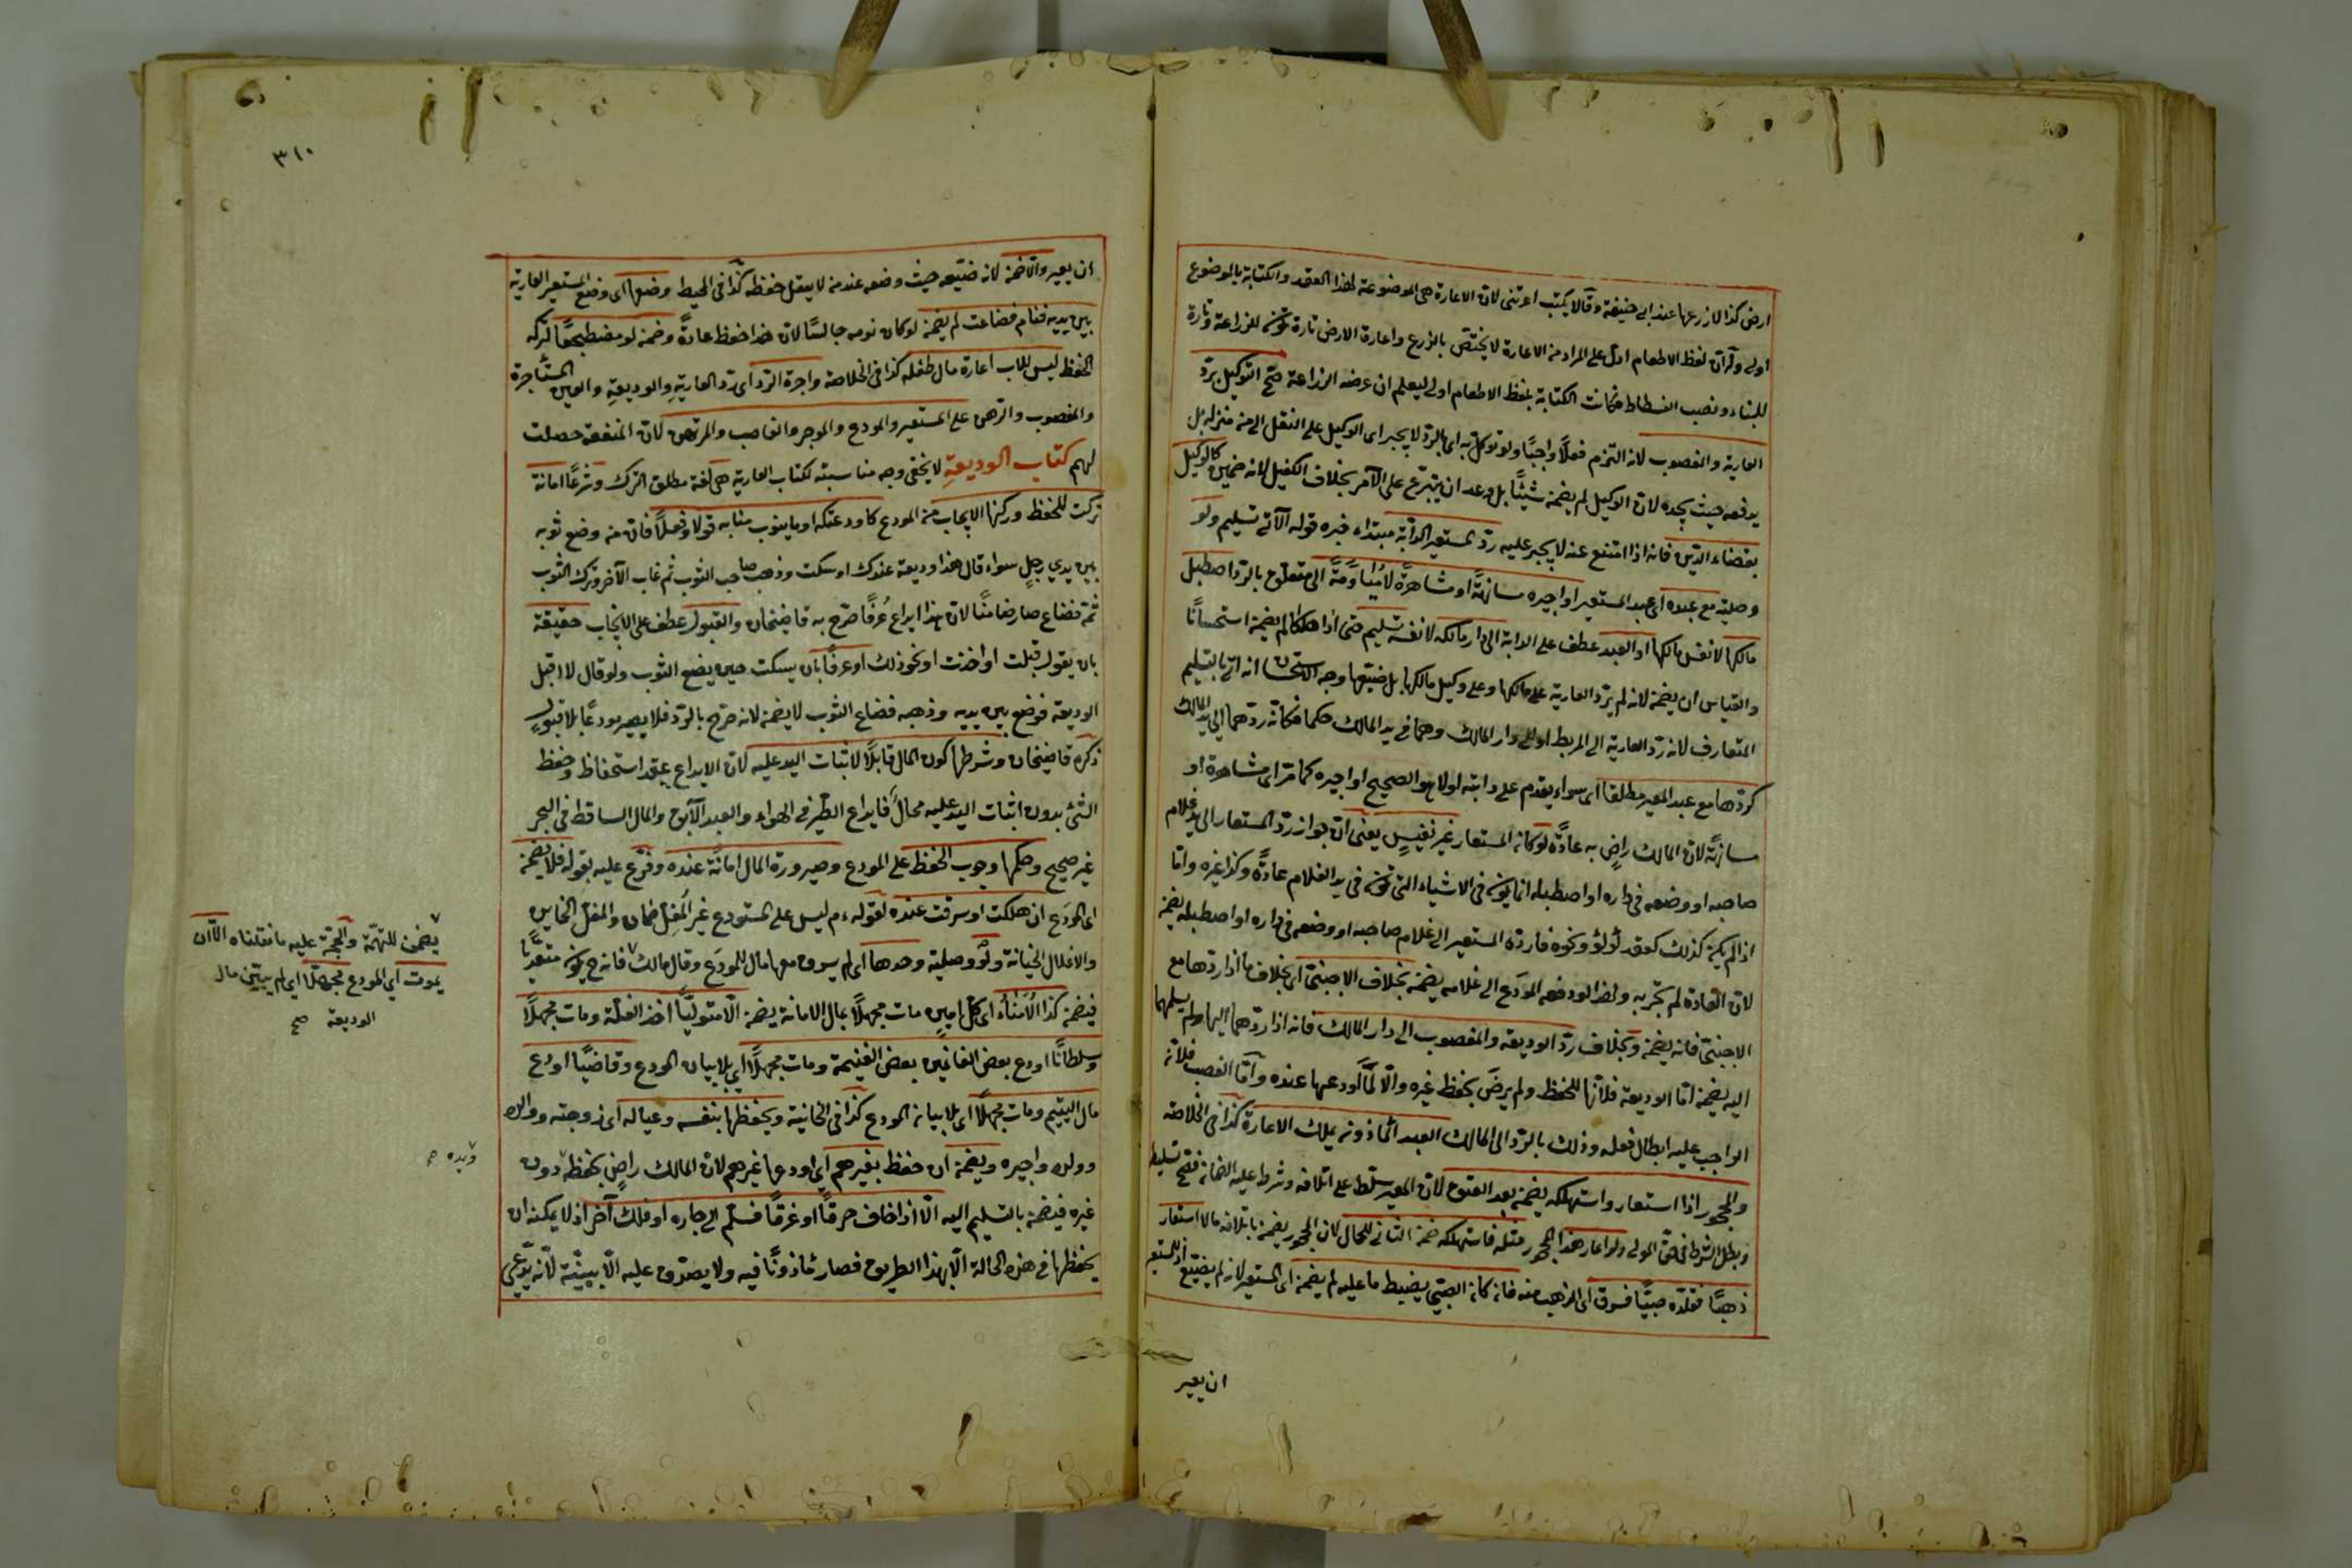 ارض كذا لازرعها عند ابى حنيفة وقالا يكتب اعرتنى لان الاعارة هى الموضوعة لهذا العقد والكتابة بالموضوع
اولى وله ان لفظ الاطعام ادل على المراد من الاعارة لا يختص بالزرع واعارة الارض تارة تكون للزراعة وتارة
للبناء ونصب الفسطاط فكانت الكتابة بلفظ الاطعام اولى ليعلم ان غرضه الزراعة صح التوكيل برد
العارية والمغصوب لانه التزم فعلا واجبا ولو توكل به اى بالرد لا يجبر اى الوكيل على النقل الى من منزله بل
يدفعه حيث يجده لان الوكيل لم يضمن شيئا بل وعد ان يتبرع على الآمر بخلاف الكفيل لانه ضمين كالوكيل
بقضاء الدين فانه اذا امتنع عنه لا يجبر عليه رد المستعير الدابة مبتداء خبره قوله الآتى تسليم ولو
وصلية مع عبده اى عبد المستعير او اجيره مسانهة او مشاهرة لا مياومة الى متعلق بالرد اصطبل
مالكها لا نفس مالكها او العبد عطف على الدابة الى دار مالكه لا نفسه تسليم حتى اذا هلكا لم يضمن استحسانا
والقياس ان يضمن لانه لم يرد العارية على مالكها وعلى وكيل مالكها بل ضيعها وجه الاستحسان انه اتى بالتسليم
المتعارف لانه رد العارية الى المربط او الى دار المالك وهما فى يد المالك حكما فكانه ردهما الى يد المالك
كردها مع عبد المعير مطلقا اى سواء يقدم على دابته او لا هو الصحيح او اجيره كما مر اى مشاهرة او
مسانهة لان المالك راض به عادة لو كان المستعار غير نفيس يعنى ان جواز رد المستعار الى يد غلام
صاحبه او وضعه فى داره او اصطبله انما يكون فى الاشياء التى تكون فى يد الغلام عادة وكذا غيره واما
اذا لم يكن كذلك كعقد لؤلؤ ونحوه فاردة المستعير الى غلام صاحبه او وضعه فى داره او اصطبله يضمن
لان العادة لم تجر به ولهذا لو دفعه المودع الى غلامه يضمن بخلاف الاجنبى اى بخلاف ما اذا ردها مع
الاجنبى فانه يضمن وبخلاف رد الوديعة والمغصوب الى دار المالك فانه اذا ردهما اليها ولم يسلمها
اليه يضمن اما الوديعة فلانها للحفظ ولم يرض بحفظ غيره والا لما اودعها عنده واما الغصب فلانه
الواجب عليه ابطال فعله وذلك بالرد الى المالك العبد المأذون يملك الاعارة كذا فى الخلاصة
والمحجور اذا استعار واستهلكه يضمن بعد العتق لان المعير سلطه على اتلافه وشرط عليه الضمان فصح تسليطه
وبطل الشرط فى حق المولى ولو اعار هذا المحجور مثله فاستهلكه ضمن الثانى للحال لان المحجور يضمن باتلافه مالا استعار
ذهبا فقلده صبيا فسرق اى الذهب منه فان كان الصبى يضبط ما عليه لم يضمن اى المستعير لانه لم يضيع اذ للمستعير
ان يعير
٣١٠
ان يعير والا ضمن لانه ضيعه حيث وضعه عند من لا يعقل حفظه كذا فى المحيط وضعها اى وضع المستعير العارية
بين يديه فنام فضاعت لم يضمن لو كان نومه جالسا لان هذا حفظ عادة وضمن لو مضطجعا لتركه
الحفظ ليس للاب اعارة مال طفله كذا فى الخلاصة واجرة الرد اى رد العارية والوديعة والعين المستأجرة
والمغصوب والرهن على المستعير والمودع والموجر والغاصب والمرتهن لان المنفعة حصلت
لهم كتاب الوديعة لا يخفى وجه مناسبته لكتاب العارية هى لغة مطلق الترك وشرعا امانة
تركت للحفظ وركنها الايجاب من المودع كاودعتك او ما ينوب منابه قولا او فعلا فان من وضع ثوبه
بين يدي رجل سواء قال هذا وديعة عندك او سكت وذهب صاحب الثوب ثم غاب الآخر وترك الثوب
ثمة فضاع صار ضامنا لان هذا ايداع عرفا صرح به قاضيخان والقبول عطف على الايجاب حقيقة
بان يقول قبلت او اخذت او نحو ذلك او عرفا بان يسكت حين يضع الثوب ولو قال لا اقبل
الوديعة فوضع بين يديه وذهب فضاع الثوب لا يضمن لانه صرح بالرد فلا يصير مودعا بلا قبول
ذكره قاضيخان وشرطها كون المال قابلا لاثبات اليد عليه لان الايداع عقد استحفاظ وحفظ
الشئ بدون اثبات اليد عليه محال فايداع الطير فى الهواء والعبد الآبق والمال الساقط فى البحر
غير صحيح وحكمها وجوب الحفظ على المودع وصيرورة المال امانة عنده وفرع عليه بقوله فلا يضمن
اى المودع ان هلكت او سرقت عنده لقوله ءم ليس على المستودع غير المغل ضمان والمغل الخاين
والاغلال الخيانة ولو وصلية وحدها اى لم يسرق معها مال للمودع وقال مالك فانه ح يكون متعديا
فيضمن كذا الامناء اى كل امين مات مجهلا بمال الامانة يضمن الا متوليا اخذ الغلة ومات مجهلا
وسلطانا اودع بعض الغانمين بعض الغنيمة ومات مجهلا اي بلا بيان المودع وقاضيا اودع
مال اليتيم ومات مجهلا اى بلا بيان المودع كذا فى الخانية ويحفظها بنفسه وعياله اى زوجته ووالده
وولده واجيره ويضمن ان حفظ بغيرهم اي اودعها غيرهم لان المالك راض بحفظه دون
غيره فيضمن بالتسليم اليه الا اذا خاف حرقا او غرقا فسلم الى جاره او فلك آخر اذ لا يمكنه ان
يحفظها فى هذه الحالة الا بهذا الطريق فصار مأذونا فيه ولا يصدق عليه الا ببينة لانه يدعي
يضمن للتهمة والحجة عليه ما نقلناه الا ان
يموت اي المودع مجهلا اي لم يبين مال
الوديعة صح
ويده